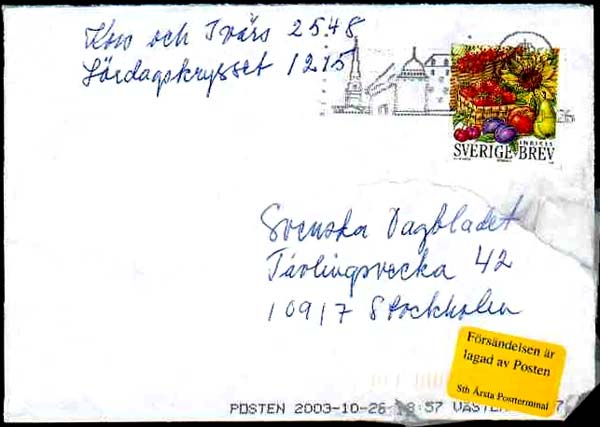 Kors och Tvärs 2548
Lördagskrysset 1215
INRIKES
SVERIGE BREV
Svenska Dagbladet
Tävlingsvecka 42
10917 Stockholm
Försändelsen är
lagad av Posten
Sth Årsta Postterminal
POSTEN 2003-10-26 18:57